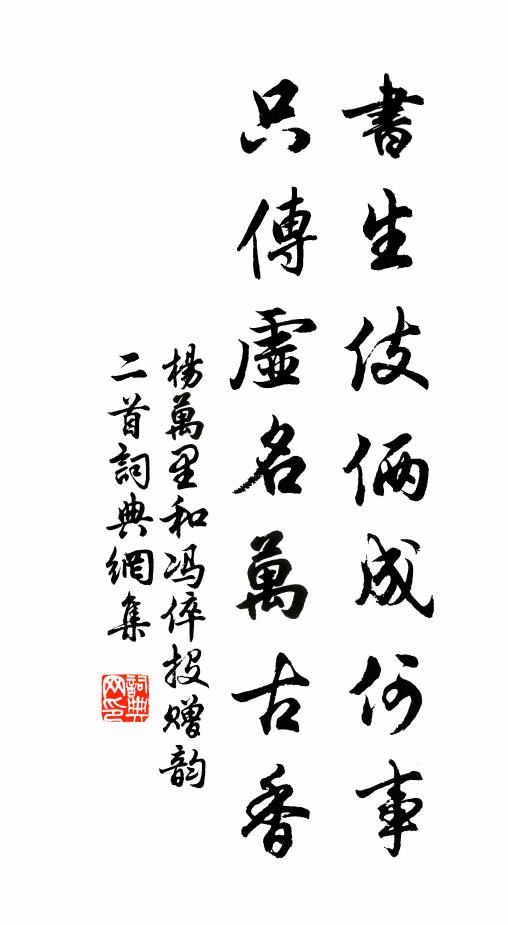 書生伎倆成何事
只傳虛名萬古香
楊萬里和馮倅投贈韵
二首詞典網集
詞典
网印